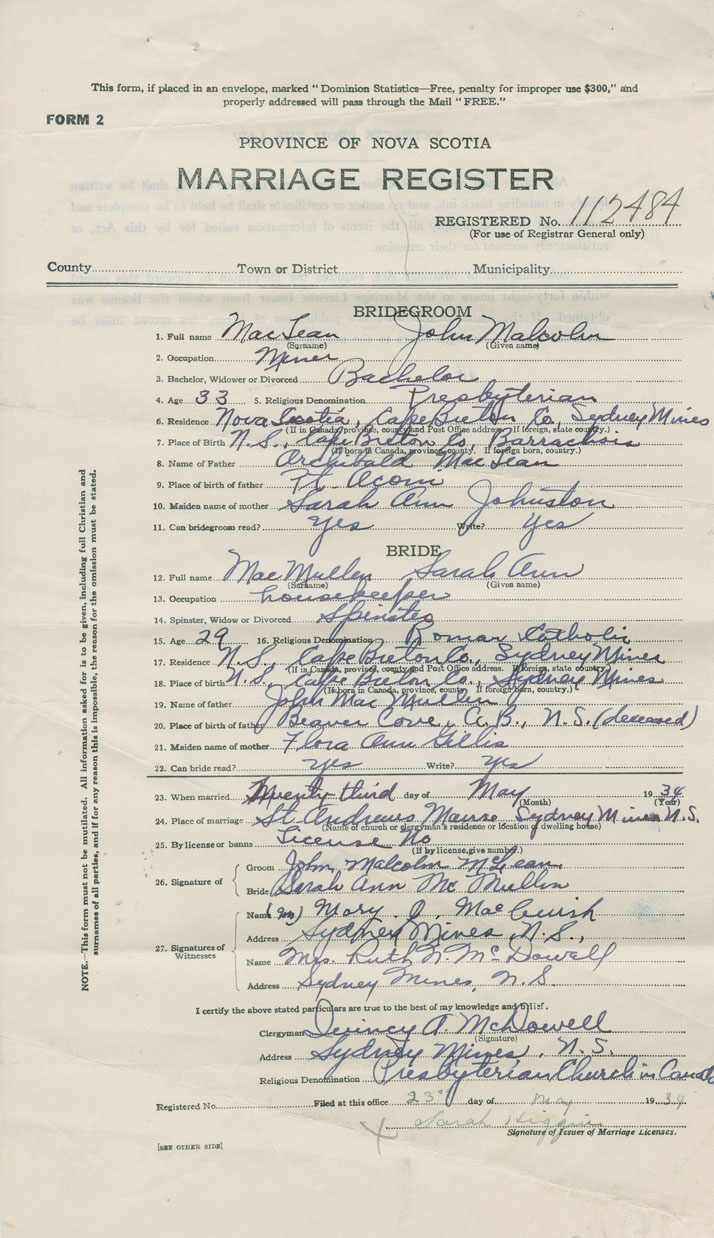 This form, if placed in an envelope, marked "Dominion Statistics—Free, penalty for improper use $300," and
properly addressed will pass through the Mail "FREE."
FORM 2
PROVINCE OF NOVA SCOTIA
MARRIAGE REGISTER
REGISTERED No. 112484
(For use of Registrar General only)
County Town or District Municipality
BRIDEGROOM
1. Full name MacLean John Malcolm
(Surname) (Given name)
2. Occupation Miner
3. Bachelor, Widower or Divorced Bachelor
4. Age 33 5. Religious Denomination Presbyterian
6. Residence Nova Scotia, Cape Breton Co, Sydney Mines
(If in Canada, province, county and Post Office address. If foreign, state country.)
7. Place of Birth N.S., Cape Breton Co, Barrachois
(If born in Canada, province, county. If foreign born, country.)
8. Name of Father Archibald MacLean
9. Place of birth of father Pt. Aconi
10. Maiden name of mother Sarah Ann Johnston
11. Can bridegroom read? Yes Write? Yes
BRIDE
12. Full name MacMullen Sarah Ann
(Surname) (Given name)
13. Occupation housekeeper
14. Spinster, Widow or Divorced Spinster
15. Age 29 16. Religious Denomination Roman Catholic
17. Residence N.S., Cape Breton Co., Sydney Mines
(If in Canada, province, county and Post Office address. If foreign, state country.)
18. Place of birth N.S., Cape Breton Co., Sydney Mines
(If born in Canada, province, county If foreign born, country.)
19. Name of father John MacMullen
20. Place of birth of father Beaver Cove, C.B., N.S. (deceased)
21. Maiden name of mother Flora Ann Gillis
22. Can bride read? Yes Write? Yes
23. When married Twenty third day of May 1934
(Month) (Year)
24. Place of marriage St. Andrews Manse Sydney Mines N.S.
(Name of church or clergyman's residence or location of dwelling house)
25. By license or banns License No
(If by license, give number.)
26. Signature of
Groom John Malcolm McLean
Bride Sarah Ann McMullin
27. Signatures of Witnesses
Name Mary J. MacCuish
Address Sydney Mines, N.S.,
Name Mrs. Ruth N. McDowell
Address Sydney Mines, N.S
I certify the above stated particulars are true to the best of my knowledge and belief.
Clergyman Quincy A. McDowell
(Signature)
Address Sydney Mines, N.S.
Religious Denomination Presbyterian Church in Canada
Registered No. Filed at this office 23rd day of May 1934
Sarah Higgins
Signature of Issuer of Marriage Licenses.
[SEE OTHER SIDE]
NOTE.—This form must not be mutilated. All information asked for is to be given, including full Christian and
surnames of all parties, and if for any reason this is impossible, the reason for the omission must be stated.